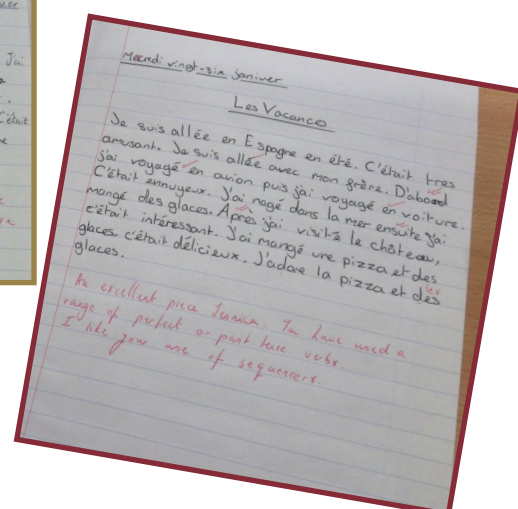 Ju
C'était
Mecredi vingt-six janiver
Les Vacances
Je suis allée en Espagne en été. C'était tres
amusant. Je suis allée avec mon frère. D'abord
j'ai voyagé en avion puis j'ai voyagé en voiture.
C'était ennuyeux. J'ai nagé dans la mer ensuite j'ai
mangé des glaces. Après j'ai visité le château,
c'était intéressant. J'ai mangé une pizza et des
glaces c'était délicieux. J'adore la pizza et des les
glaces.
An excellent piece Jessica. You have used a
range of perfect or past tense verbs.
I like your use of sequencers.